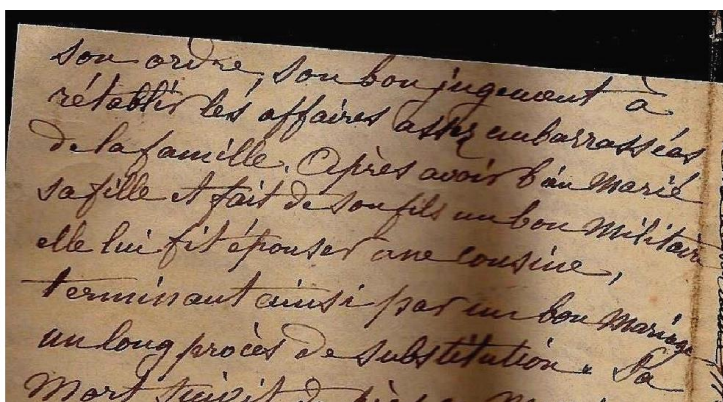 son ordre, son bon jugement à
rétablir les affaires assez embarrassées
de la famille. Après avoir bien marié
sa fille et fait de son fils un bon militaire
elle lui fit épouser une cousine,
terminant ainsi par un bon mariage
un long procès de substitution. Sa
mort suivit de